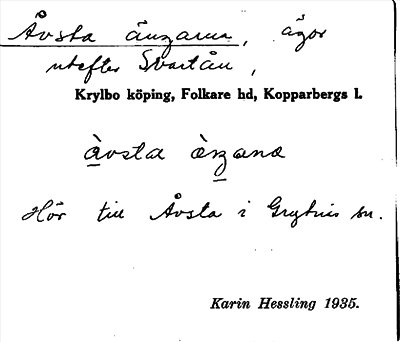 Åvsta ängarna, ägor
utefter Svartån,
Krylbo köping, Folkare hd, Kopparbergs l.
åvsta
Hör till Åvsta i Grytnäs sn.
Karin Hessling 1935.